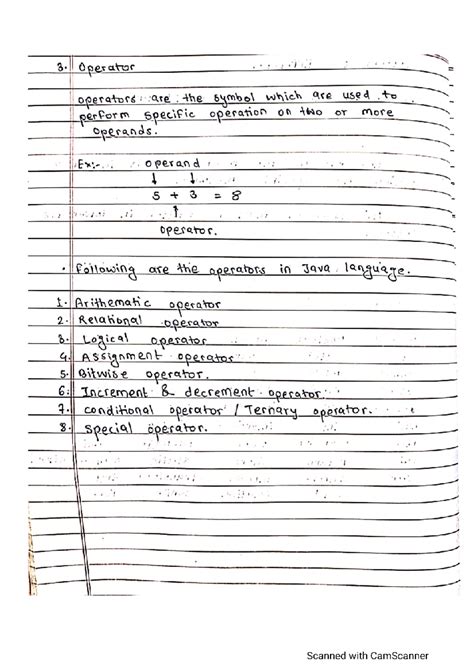 3. Operator
operators are the symbol which are used to
perform specific operation on two or more
operands.
Ex:- operand
↓ ↓
5 + 3 = 8
↑
operator.
• Following are the operators in Java language.
1. Arithematic operator
2. Relational operator
3. Logical operator
4. Assignment operator
5. Bitwise operator.
6. Increment & decrement operator.
7. conditional operator / Ternary operator.
8. special operator.
Scanned with CamScanner